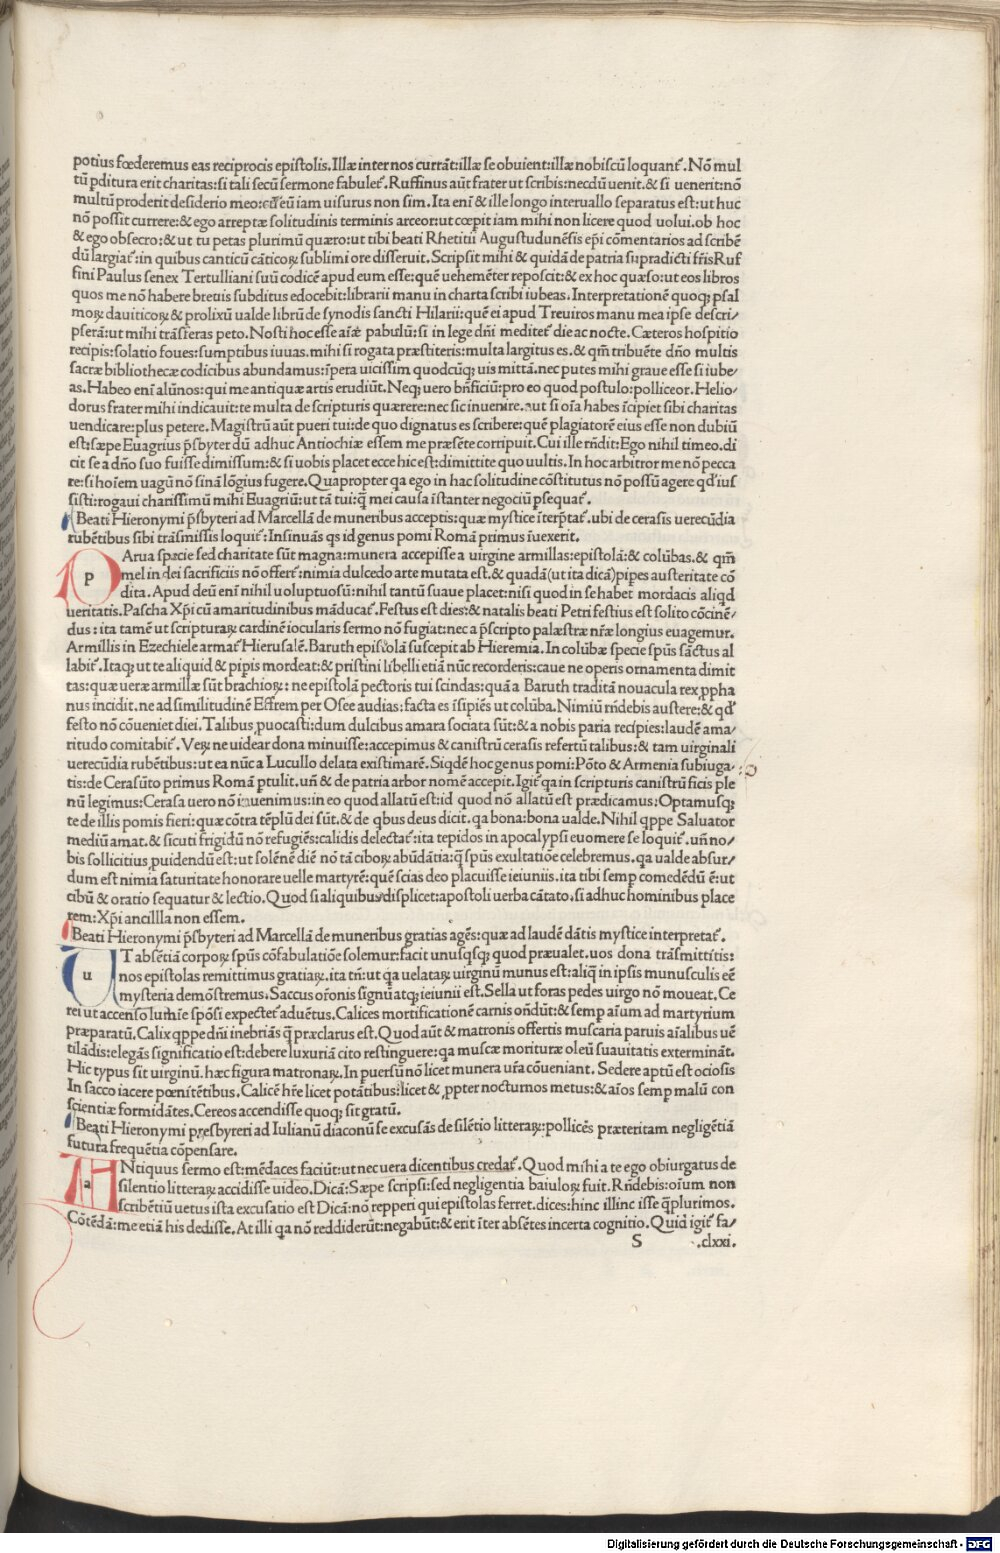 potius fœderemus eas reciprocis epistolis. Illæ inter nos currāt: illæ se obuient: illæ nobiscū loquant᷑. Nō mul
tū pditura erit charitas: si tali secū sermone fabulet᷑. Ruffinus aūt frater ut scribis: necdū uenit. & si uenerit: nō
multū proderit desiderio meo: eū iam uisurus non sim. Ita enī & ille longo interuallo separatus est: ut huc
nō possit currere: & ego arreptæ solitudinis terminis arceor: ut cœpit iam mihi non licere quod uolui. ob hoc
& ego obsecro: & ut tu petas plurimū quæro: ut tibi beati Rhetitii Augustudunēsis ep̄i cōmentarios ad scribē
dū largiat᷑: in quibus canticū cāticoꝝ sublimi ore disseruit. Scripsit mihi & quidā de patria supradicti fr̄is Ruf
fini Paulus senex Tertulliani suū codicē apud eum esse: quē uehemēter reposcit: & ex hoc quæso: ut eos libros
quos me nō habere breuis subditus edocebit: librarii manu in charta scribi iubeas. Interpretationē quoq; psal
moꝝ dauiticoꝝ & prolixū ualde librū de synodis sancti Hilarii: quē ei apud Treuiros manu mea ipse descri/
pserā: ut mihi trāsferas peto. Nosti hoc esse aīæ pabulū: si in lege dn̄i meditet᷑ die ac nocte. Cæteros hospitio
recipis: solatio foues: sumptibus iuuas. mihi si rogata præstiteris: multa largitus es. & qm̄ tribuēte dn̄o multis
sacræ bibliothecæ codicibus abundamus: īpera uicissim quodcūq; uis mittā. nec putes mihi graue esse si iube/
as. Habeo enī alūnos: qui me antiquæ artis erudiūt. Neq; uero bn̄ficiū: pro eo quod postulo: polliceor. Helio/
dorus frater mihi indicauit: te multa de scripturis quærere: nec sic inuenire. aut si oīa habes īcipiet sibi charitas
uendicare: plus petere. Magistrū aūt pueri tui: de quo dignatus es scribere: quē plagiatorē eius esse non dubiū
est: sæpe Euagrius p̄sbyter dū adhuc Antiochiæ essem me præsēte corripuit. Cui ille rn̄dit: Ego nihil timeo. di
cit se a dn̄o suo fuisse dimissum: & si uobis placet ecce hic est: dimittite quo uultis. In hoc arbitror me nō pecca
re: si hoīem uagū nō sinā lōgius fugere. Quapropter qa ego in hac solitudine cōstitutus nō possū agere qd' ius
sisti: rogaui charissimū mihi Euagriū: ut tā tui: q̄ mei causa īstanter negociū psequat᷑.
Beati Hieronymi p̄sbyteri ad Marcellā de muneribus acceptis: quæ mystice īterp̄tat᷑. ubi de cerasis uerecūdia
rubētibus sibi trāsmissis loquit᷑: Insinuās qs id genus pomi Romā primus īuexerit.
p Arua specie sed charitate sūt magna: munera accepisse a uirgine armillas: epistolā: & colūbas. & qm̄
mel in dei sacrificiis nō offert᷑: nimia dulcedo arte mutata est. & quadā (ut ita dicā) pipes austeritate cō
dita. Apud deū enī nihil uoluptuosū: nihil tantū suaue placet: nisi quod in se habet mordacis aliqd
ueritatis. Pascha Xp̄i cū amaritudinibus māducat᷑. Festus est dies: & natalis beati Petri festius est solito cōcinē/
dus: ita tamē ut scripturaꝝ cardinē iocularis sermo nō fugiat: nec a p̄scripto palæstræ nr̄æ longius euagemur.
Armillis in Ezechiele armat᷑ Hierusalē. Baruth epistolā suscepit ab Hieremia. In colūbæ specie spūs sāctus al
labit᷑. Itaq; ut te aliquid & pipis mordeat: & pristini libelli etiā nūc recorderis: caue ne operis ornamenta dimit
tas: quæ ueræ armillæ sūt brachioꝝ: ne epistolā pectoris tui scindas: quā a Baruth traditā nouacula rex ppha
nus incidit. ne ad similitudinē Effrem per Osee audias: facta es īsipiēs ut colūba. Nimiū rn̄debis austere: & qd'
festo nō cōueniet diei. Talibus puocasti: dum dulcibus amara sociata sūt: & a nobis paria recipies: laudē ama/
ritudo comitabit᷑. Veꝝ ne uidear dona minuisse: accepimus & canistrū cerasis refertū talibus: & tam uirginali
uerecūdia rubētibus: ut ea nūc a Lucullo delata existimarē. Siqdē hoc genus pomi: Pōto & Armenia subiuga/
tis: de Cerasūto primus Romā ptulit. un̄ & de patria arbor nomē accepit. Igit᷑ qa in scripturis canistrū ficis ple
nū legimus: Cerasa uero nō inuenimus: in eo quod allatū est: id quod nō allatū est prædicamus: Optamusq;
te de illis pomis fieri: quæ cōtra tēplū dei sūt. & de qbus deus dicit. qa bona: bona ualde. Nihil qppe Saluator
mediū amat. & sicuti frigidū nō refugiēs: calidis delectat᷑: ita tepidos in apocalypsi euomere se loquit᷑. un̄ no/
bis sollicitius puidendū est: ut solēnē diē nō tā ciboꝝ abūdātia: q̄ spūs exultatiōe celebremus. qa ualde absur/
dum est nimia saturitate honorare uelle martyrē: quē scias deo placuisse ieiuniis. ita tibi semp comedēdū ē: ut
cibū & oratio sequatur & lectio. Quod si aliquibus displicet: apostoli uerba cātato. si adhuc hominibus place
rem: Xp̄i ancillla non essem.
Beati Hieronymi p̄sbyteri ad Marcellā de muneribus gratias agēs: quæ ad laudē dātis mystice interpretat᷑.
u T absētiā corpoꝝ spūs cōfabulatiōe solemur: facit unusqsq; quod præualet. uos dona trāsmittitis:
nos epistolas remittimus gratiaꝝ. ita tn̄: ut qa uelataꝝ uirginū munus est: aliq̄ in ipsis munusculis eē
mysteria demōstremus. Saccus or̄onis signū atq; ieiunii est. Sella ut foras pedes uirgo nō moueat. Ce
rei ut accenso lumīe spōsi expectet᷑ aduētus. Calices mortificationē carnis on̄dūt: & semp aīum ad martyrium
præparatū. Calix qppe dn̄i inebriās q̄ præclarus est. Quod aūt & matronis offertis muscaria paruis aīalibus uē
tilādis: elegās significatio est: debere luxuriā cito restinguere: qa muscæ morituræ oleū suauitatis extermināt.
Hic typus sit uirginū. hæc figura matronaꝝ. In puersū nō licet munera ur̄a cōueniant. Sedere aptū est ociosis
In sacco iacere pœnitētibus. Calicē hr̄e licet potātibus: licet & ppter nocturnos metus: & aīos semp malū con
scientiæ formidātes. Cereos accendisse quoq; sit gratū.
Beati Hieronymi presbyreri ad Iulianū diaconū se excusās de silētio litteraꝝ: pollicēs præteritam negligētiā
futura frequētia cōpensare.
a Ntiquus sermo est: mēdaces faciūt: ut nec uera dicentibus credat᷑. Quod mihi a te ego obiurgatus de
silentio litteraꝝ accidisse uideo. Dicā: Sæpe scripsi: sed negligentia baiuloꝝ fuit. Rn̄debis: oīum non
scribētiū uetus ista excusatio est Dicā: nō repperi qui epistolas ferret. dices: hinc illinc isse q̄plurimos.
Cōtēdā: me etiā his dedisse. At illi qa nō reddiderūt: negabūt: & erit īter absētes incerta cognitio. Quid igit᷑ fa/
S .clxxi.
Digitalisierung gefördert durch die Deutsche Forschungsgemeinschaft - DFG